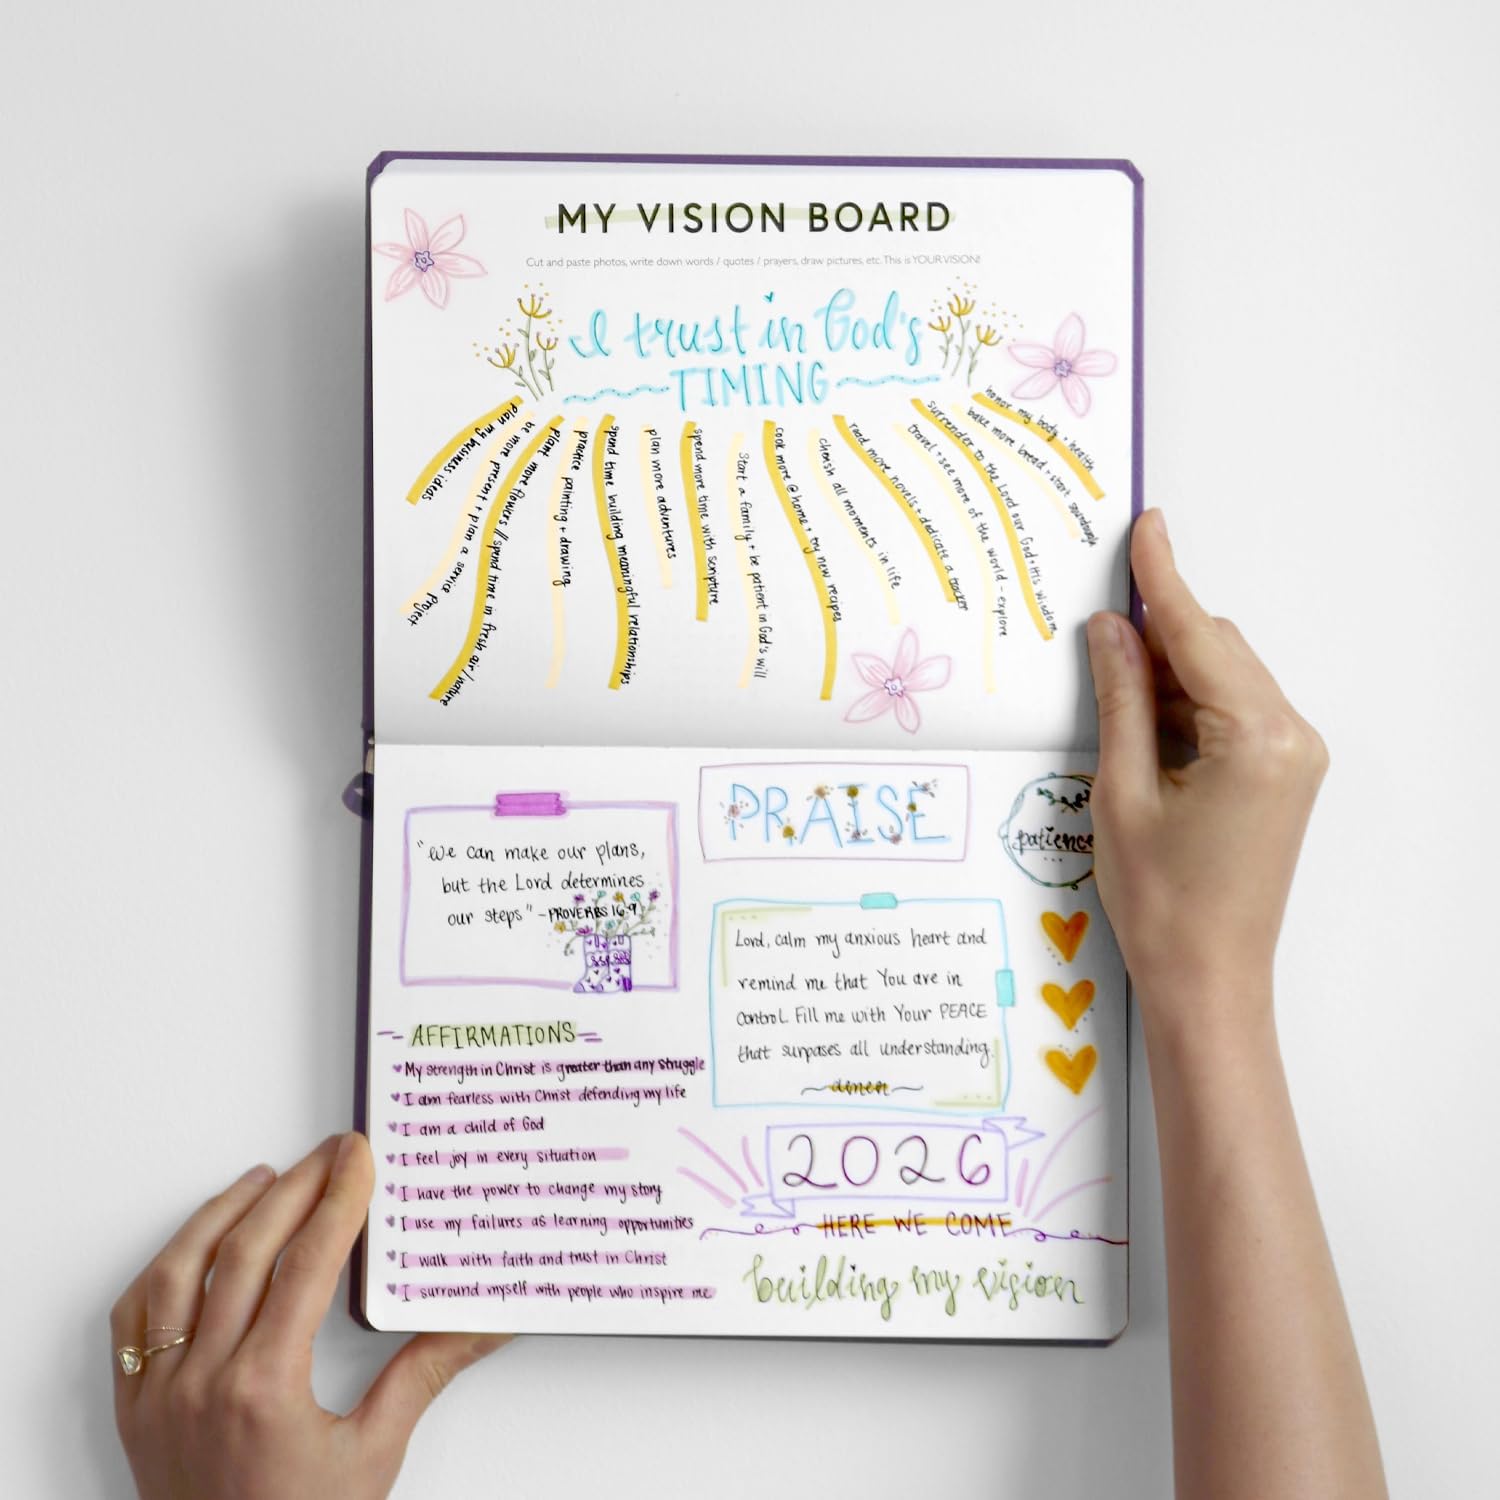 MY VISION BOARD
Cut and paste photos, write down words / quotes / prayers, draw pictures, etc. This is YOUR VISION!
I trust in God's
TIMING
plan my business ideas
be more present + plan a service project
plant more flowers // spend time in fresh air / nature
practice painting + drawing
spend time building meaningful relationships
plan more adventures
spend more time with scripture
Start a family + be patient in God's will
cook more @ home + try new recipes
cherish all moments in life
read more novels + dedicate a tracker
travel + see more of the world - explore
surrender to the Lord our God + His wisdom
bake more bread + start sourdough
honor my body + health
PRAISE
patience
"We can make our plans,
but the Lord determines
our steps" - PROVERBS 16:9
Lord, calm my anxious heart and
remind me that You are in
control. Fill me with Your PEACE
that surpases all understanding.
amen
AFFIRMATIONS
My strength in Christ is greater than any struggle
I am fearless with Christ defending my life
I am a child of God
I feel joy in every situation
I have the power to change my story
I use my failures as learning opportunities
I walk with faith and trust in Christ
I surround myself with people who inspire me
2026
HERE WE COME
building my vision